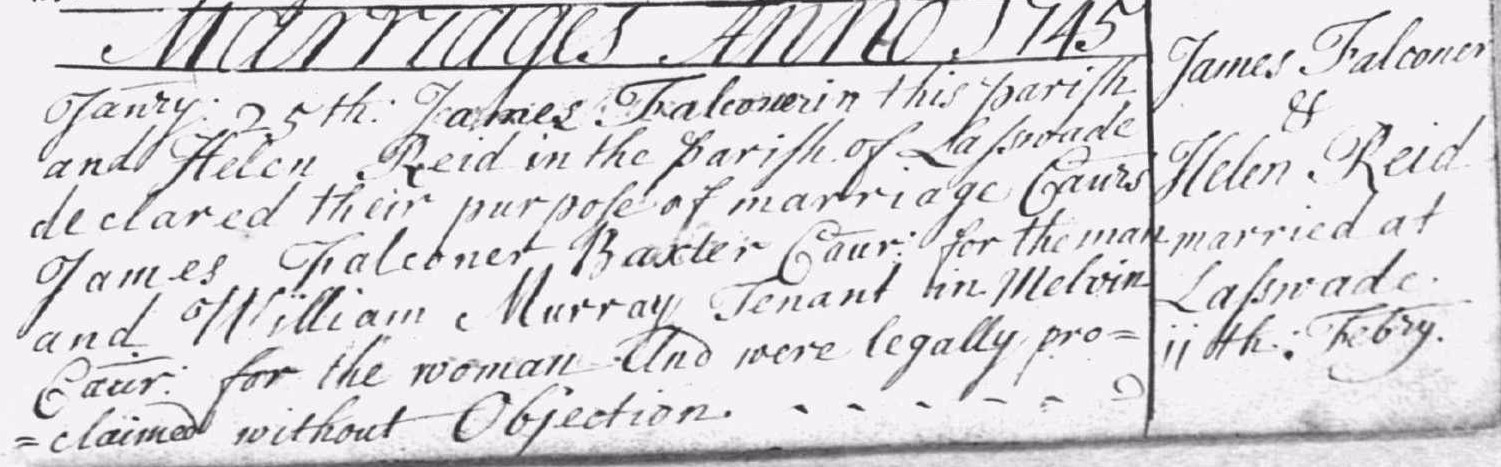 Marriages Anno 1745
Janry: 25th: James Falconer in this parish
and Helen Reid in the parish of Lasswade
declared their purpose of marriage Caurs
James Falconer Baxter Caur: for the man
and William Murray Tenant in Melvin
Caur: for the woman And were legally pro=
=claimed without Objection.
James Falconer
&
Helen Reid
married at
Lasswade.
11th: Febry.